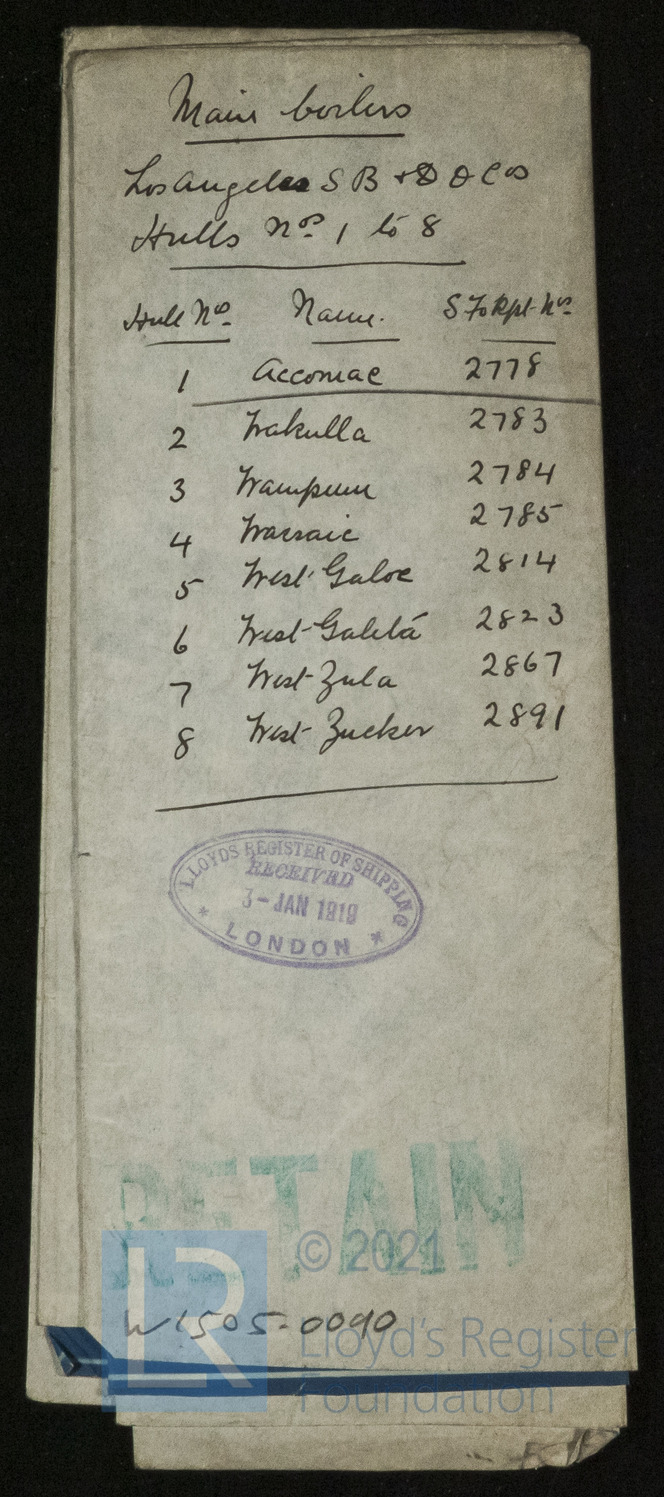 Main boilers
Los Angeles S B + D D Cos
Hulls Nos 1 to 8
Hull No. Name. S Fo Rpt. Nos
1 Accomac 2778
2 Wakulla 2783
3 Wampum 2784
4 Wassaic 2785
5 West Galoc 2814
6 West Galeta 2823
7 West Zula 2867
8 West Zucker 2891
LLOYDS REGISTER OF SHIPPING
RECEIVED
3-JAN 1919
* LONDON *
RETAIN
© 2021
LR
W1505-0090
Lloyd's Register
Foundation